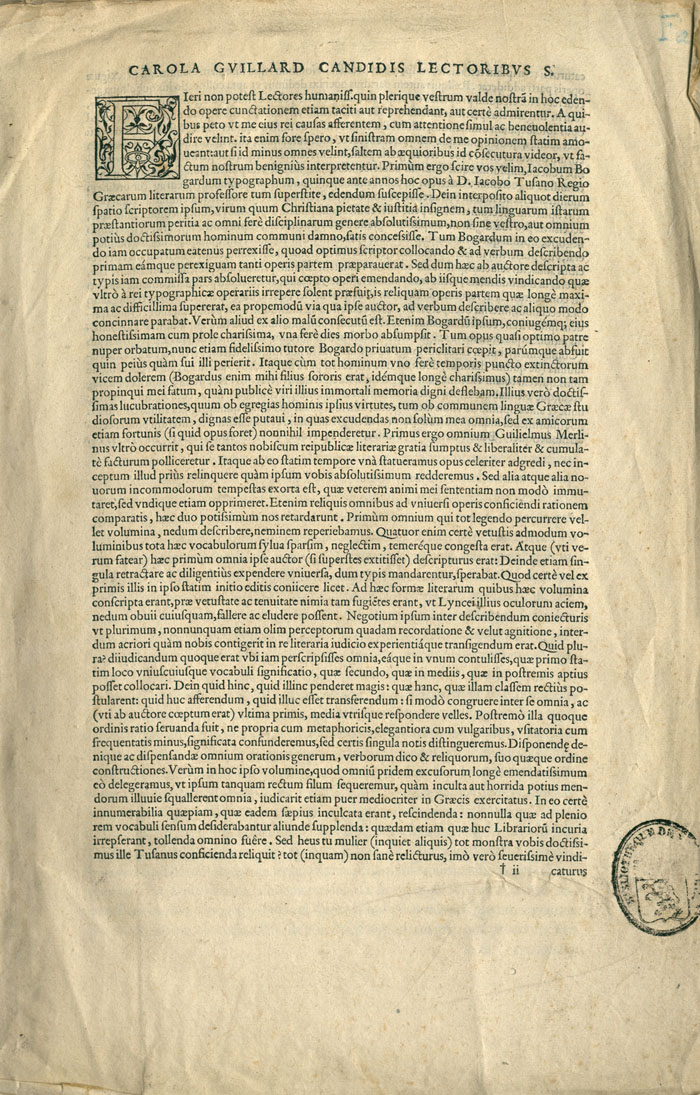 CAROLA GVILLARD CANDIDIS LECTORIBVS S.
FIeri non potest Lectores humaniss. quin plerique vestrum valde nostrã in hoc eden-
do opere cunctationem etiam taciti aut reprehendant, aut certè admirentur. A qui-
bus peto vt me eius rei causas afferentem, cum attentione simul ac beneuolentia au-
dire velint. ita enim fore spero, vt sinistram omnem de me opinionem statim amo-
ueant: aut si id minus omnes velint, saltem ab æquioribus id cõsecutura videor, vt fa-
ctum nostrum benigniùs interpretentur. Primùm ergo scire vos velim, Iacobum Bo
gardum typographum, quinque ante annos hoc opus à D. Iacobo Tusano Regio
Græcarum literarum professore tum superstite, edendum suscepisse. Dein interposito aliquot dierum
spatio scriptorem ipsum, virum quum Christiana pietate & iustitia insignem, tum linguarum istarum
præstantiorum peritia ac omni ferè disciplinarum genere absolutissimum, non sine vestro, aut omnium
potiùs doctissimorum hominum communi damno, fatis concessisse. Tum Bogardum in eo excuden-
do iam occupatum eatenus perrexisse, quoad optimus scriptor collocando & ad verbum describendo
primam eámque perexiguam tanti operis partem præparauerat. Sed dum hæc ab auctore descripta ac
typis iam commissa pars absolueretur, qui cœpto operi emendando, ab iisque mendis vindicando quæ
vltrò à rei typographicæ operariis irrepere solent præfuit, is reliquam operis partem quæ longè maxi-
ma ac difficillima supererat, ea propemodũ via qua ipse auctor, ad verbum describere ac aliquo modo
concinnare parabat. Verùm aliud ex alio malũ consecutũ est. Etenim Bogardũ ipsum, coniugémq; eius
honestissimam cum prole charissima, vna ferè dies morbo absumpsit. Tum opus quasi optimo patre
nuper orbatum, nunc etiam fidelissimo tutore Bogardo priuatum periclitari cœpit, parúmque abfuit
quin peiùs quàm sui illi perierit. Itaque cùm tot hominum vno ferè temporis puncto extinctorum
vicem dolerem (Bogardus enim mihi filius sororis erat, idémque longè charissimus) tamen non tam
propinqui mei fatum, quàm publicè viri illius immortali memoria digni deflebam. Illius verò doctis-
simas lucubrationes, quum ob egregias hominis ipsius virtutes, tum ob communem linguæ Græcæ stu
diosorum vtilitatem, dignas esse putaui, in quas excudendas non solùm mea omnia, sed ex amicorum
etiam fortunis (si quid opus foret) nonnihil impenderetur. Primus ergo omnium Guilielmus Merli-
nus vltrò occurrit, qui se tantos nobiscum reipublicæ literariæ gratia sumptus & liberaliter & cumula-
tè facturum polliceretur. Itaque ab eo statim tempore vnà statueramus opus celeriter adgredi, nec in-
ceptum illud priùs relinquere quàm ipsum vobis absolutissimum redderemus. Sed alia atque alia no-
uorum incommodorum tempestas exorta est, quæ veterem animi mei sententiam non modò immu-
taret, sed vndique etiam opprimeret. Etenim reliquis omnibus ad vniuersi operis conficiẽdi rationem
comparatis, hæc duo potissimùm nos retardarunt. Primùm omnium qui tot legendo percurrere vel-
let volumina, nedum describere, neminem reperiebamus. Quatuor enim certè vetustis admodum vo-
luminibus tota hæc vocabulorum sylua sparsim, neglectim, temeréque congesta erat. Atque (vti ve-
rum fatear) hæc primùm omnia ipse auctor (si superstes extitisset) descripturus erat: Deinde etiam sin-
gula retractare ac diligentiùs expendere vniuersa, dum typis mandarentur, sperabat. Quod certè vel ex
primis illis in ipso statim initio editis coniicere licet. Ad hæc formæ literarum quibus hæc volumina
conscripta erant, præ vetustate ac tenuitate nimia tam fugiẽtes erant, vt Lyncei illius oculorum aciem,
nedum obuii cuiusquam, fallere ac eludere possent. Negotium ipsum inter describendum coniecturis
vt plurimum, nonnunquam etiam olim perceptorum quadam recordatione & velut agnitione, inter-
dum acriori quàm nobis contigerit in re literaria iudicio experientiáque transigendum erat. Quid plu-
ra? diiudicandum quoque erat vbi iam perscripsisses omnia, eáque in vnum contulisses, quæ primo sta-
tim loco vniuscuiusque vocabuli significatio, quæ secundo, quæ in mediis, quæ in postremis aptius
posset collocari. Dein quid hinc, quid illinc penderet magis: quæ hanc, quæ illam classem rectiùs po-
stularent: quid huc afferendum, quid illuc esset transferendum: si modò congruere inter se omnia, ac
(vti ab auctore cœptum erat) vltima primis, media vtrisque respondere velles. Postremò illa quoque
ordinis ratio seruanda fuit, ne propria cum metaphoricis, elegantiora cum vulgaribus, vsitatoria cum
frequentatis minus, significata confunderemus, sed certis singula notis distingueremus. Disponendę de-
nique ac dispensandæ omnium orationis generum, verborum dico & reliquorum, suo quæque ordine
constructiones. Verùm in hoc ipso volumine, quod omniũ pridem excusorum longè emendatissimum
eò delegeramus, vt ipsum tanquam rectum filum sequeremur, quàm inculta aut horrida potius men-
dorum illuuie squallerent omnia, iudicarit etiam puer mediocriter in Græcis exercitatus. In eo certè
innumerabilia quæpiam, quæ eadem sæpius inculcata erant, rescindenda: nonnulla quæ ad plenio
rem vocabuli sensum desiderabantur aliunde supplenda: quædam etiam quæ huc Librariorũ incuria
irrepserant, tollenda omnino fuêre. Sed heus tu mulier (inquiet aliquis) tot monstra vobis doctissi-
mus ille Tusanus conficienda reliquit? tot (inquam) non sanè relicturus, imò verò seuerissimè vindi-
† ii caturus
BIBLIOTHEQUE DE